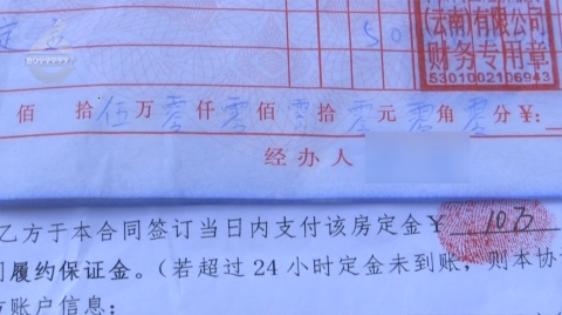 定金
50
(云南)有限公司
财务专用章
5301002106943
佰 拾伍万零仟零佰零拾零元零角零分¥:
经办人
乙方于本合同签订当日内支付该房定金¥ 10万
履约保证金。(若超过 24 小时定金未到账,则本协
账户信息: